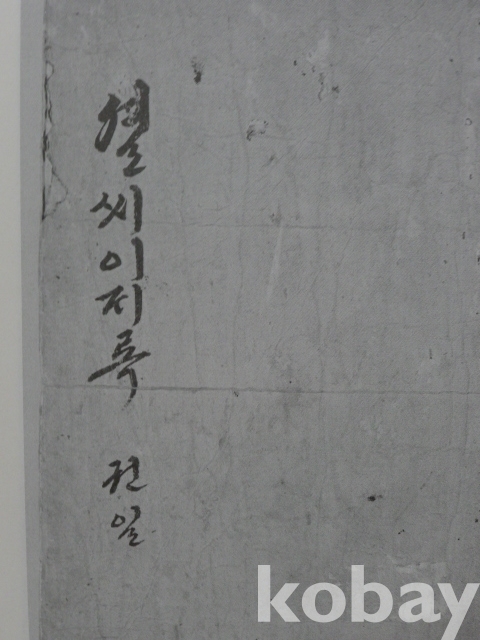 셜씨이ᄃᆡ록
권일
kobay